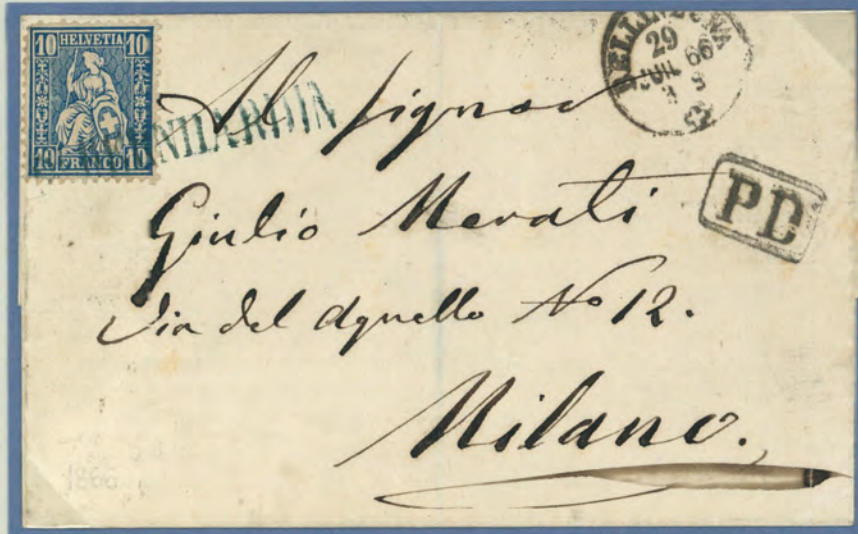 10 HELVETIA 10
10 FRANCO 10
BELLINZONA
29
JUIL 66
Al Signor
PD
Giulio Merati
Via del Agnello No 12.
Milano.
1866